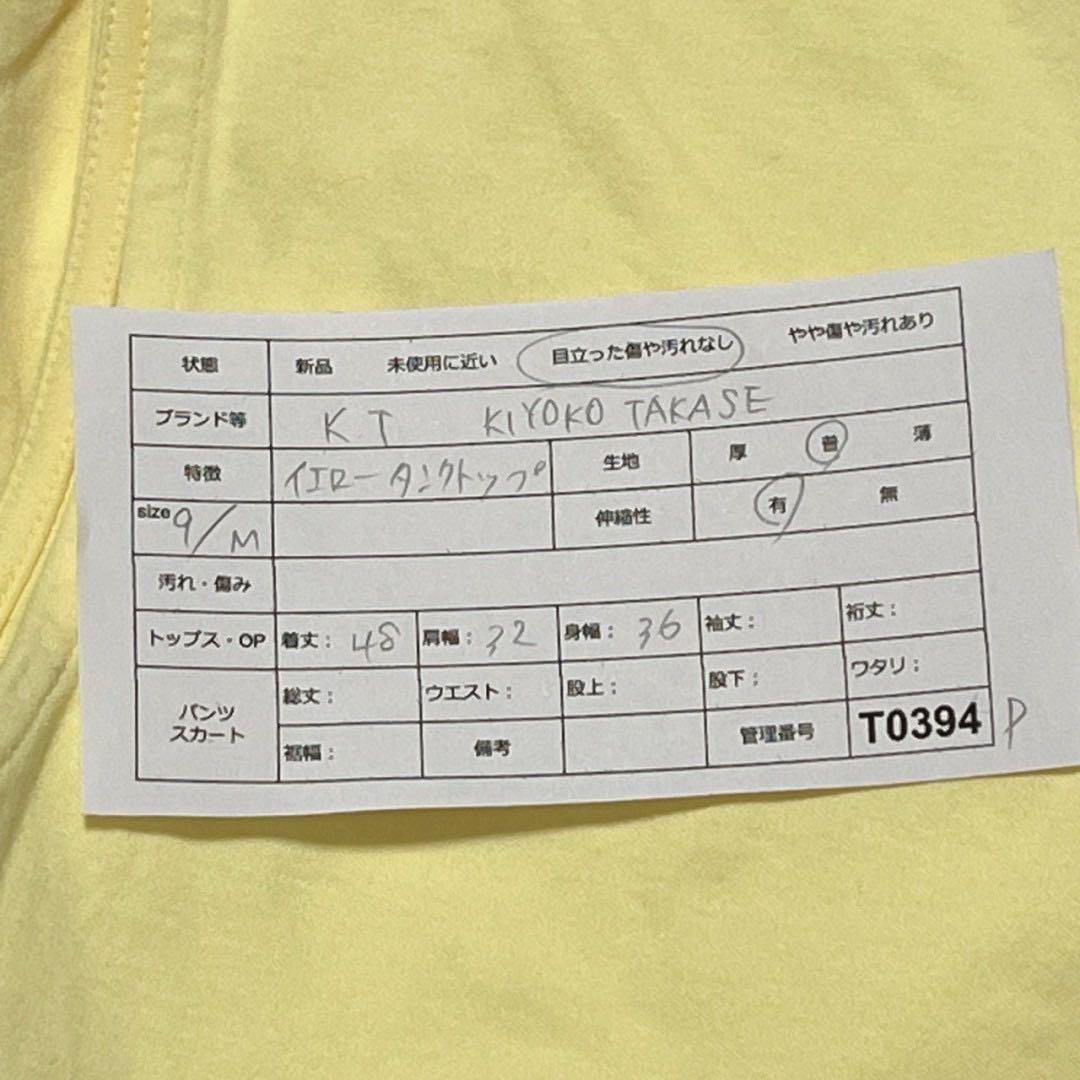 状態 新品 未使用に近い 目立った傷や汚れなし やや傷や汚れあり
ブランド等 KT KIYOKO TAKASE
特徴 イエロータンクトップ 生地 厚 普 薄
size 9/M 伸縮性 有 無
汚れ・傷み
トップス・OP 着丈: 48 肩幅: 32 身幅: 36 袖丈: 裄丈:
パンツ スカート 総丈: ウエスト: 股上: 股下: ワタリ:
裾幅: 備考 管理番号 T0394 P